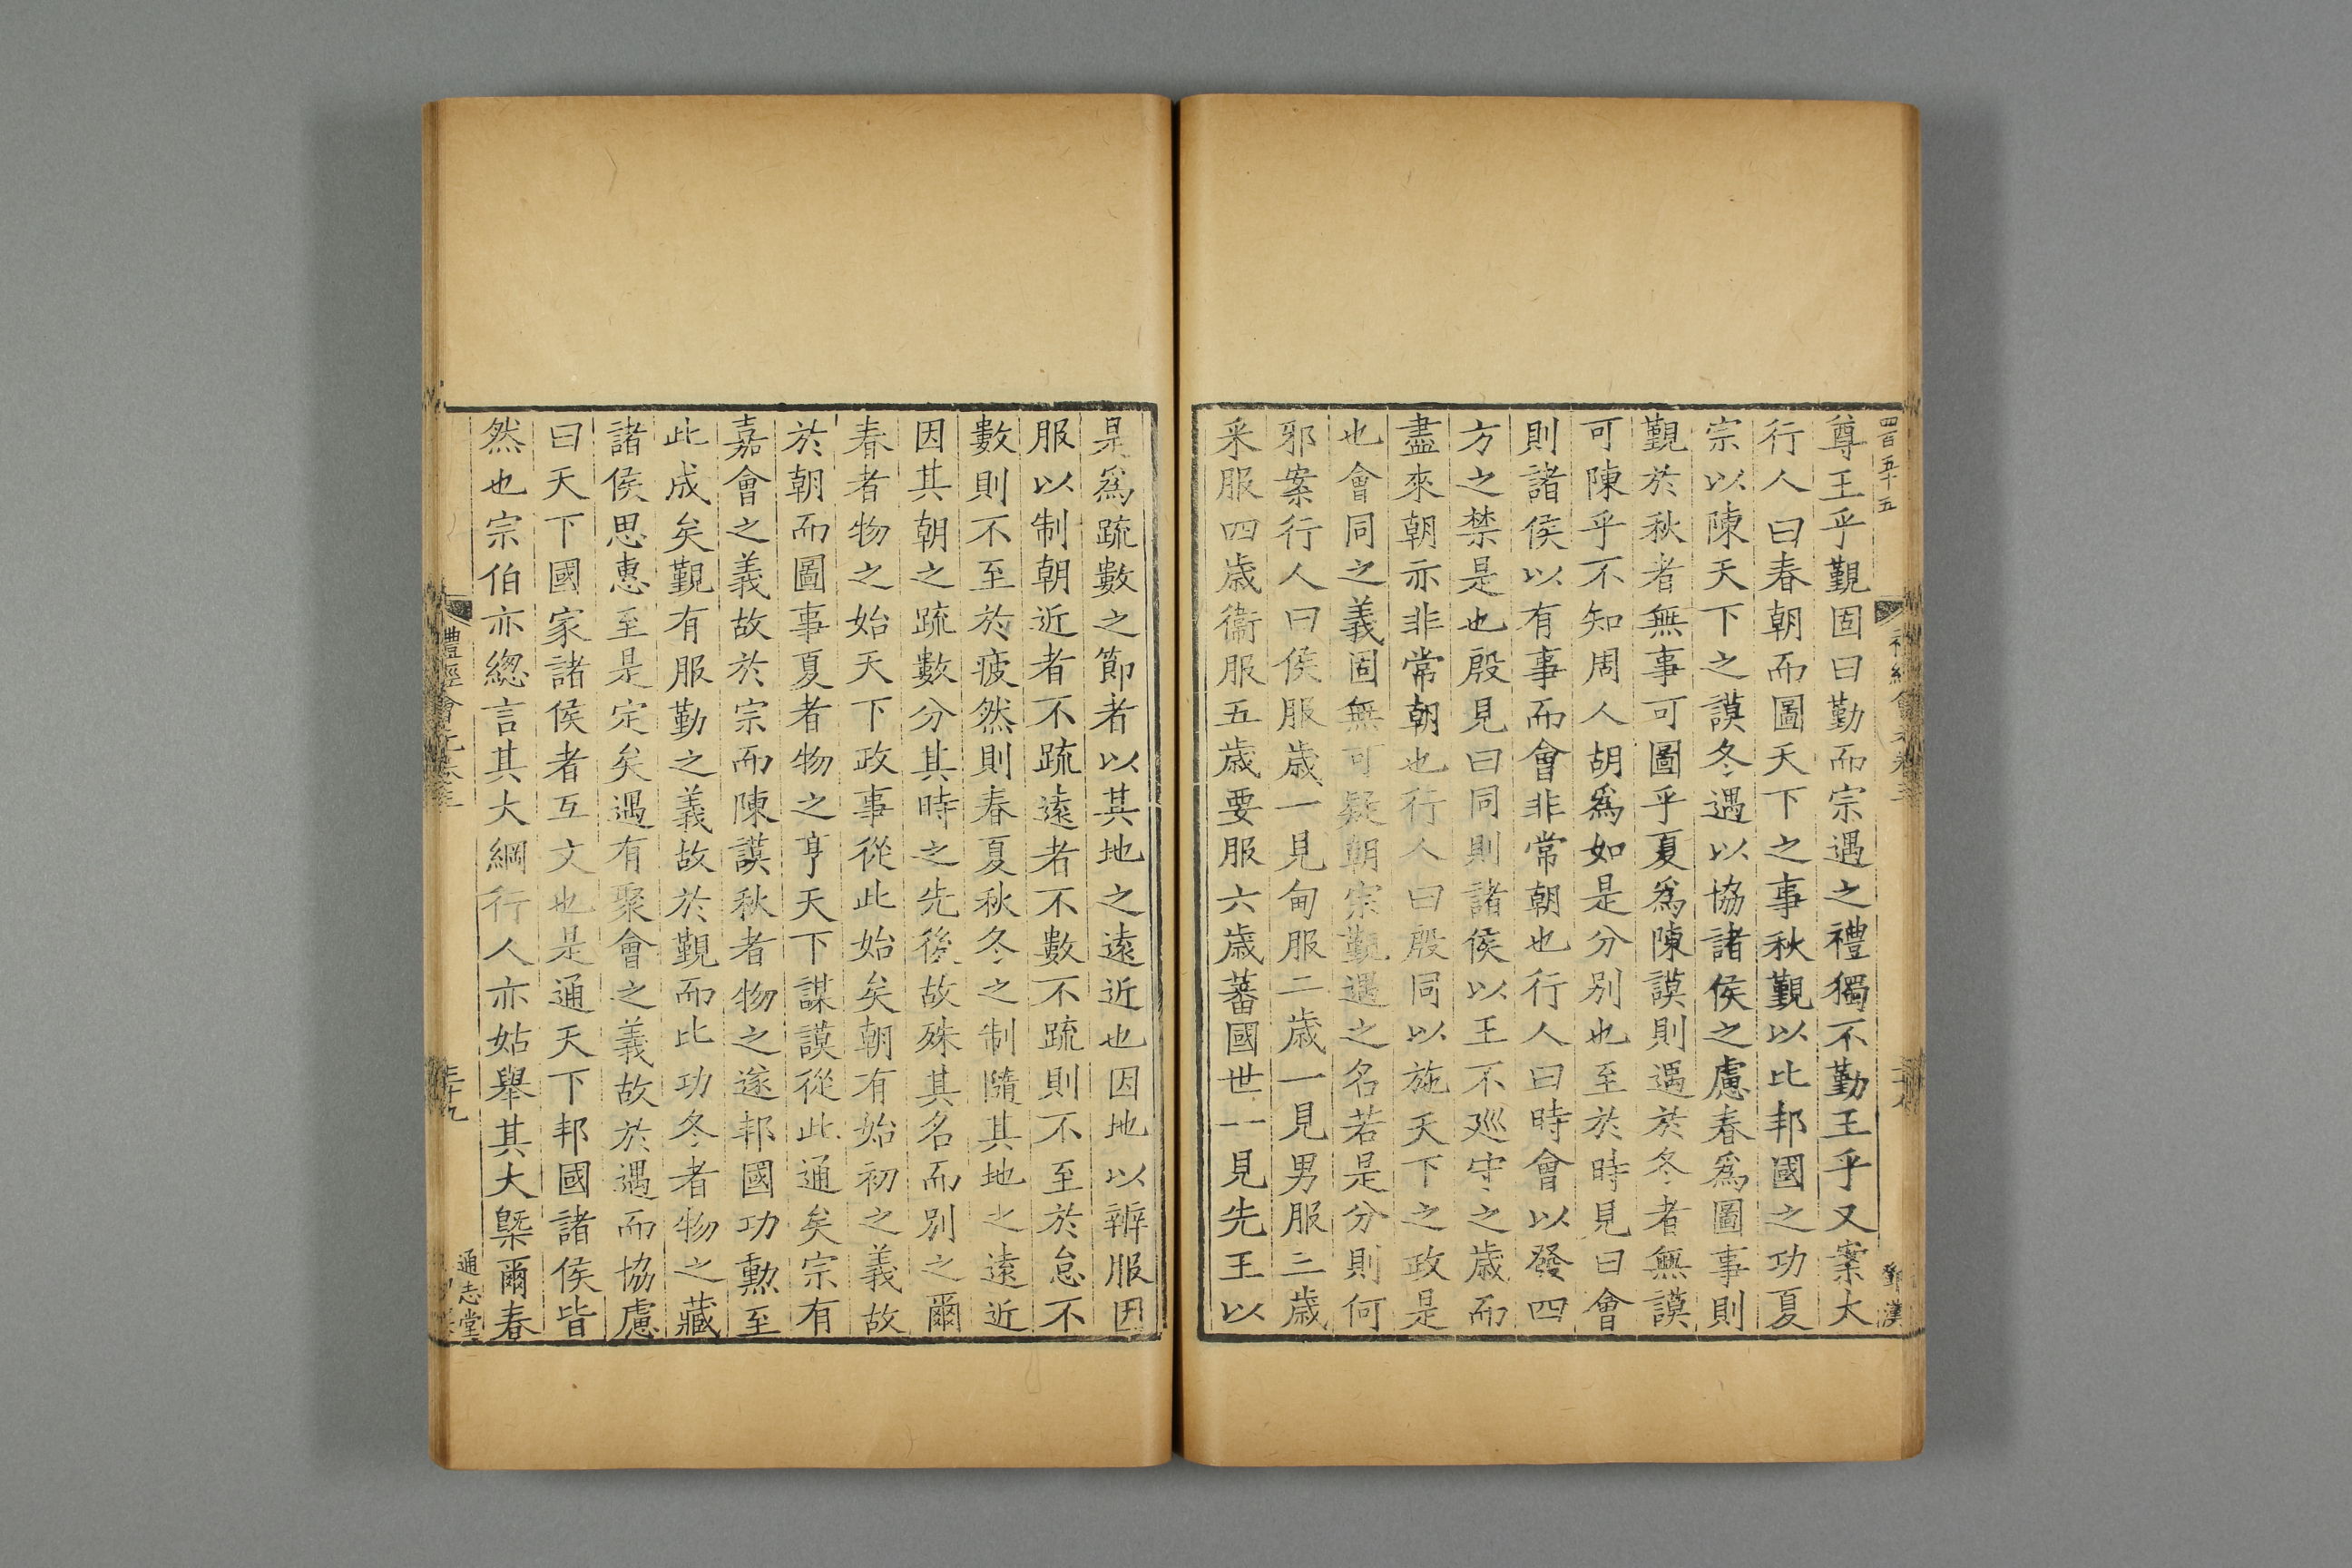 四百五十五
尊王乎覲固曰勤而宗遇之禮獨不勤王乎又案大
行人曰春朝而圖天下之事秋覲以比邦國之功夏
宗以陳天下之謨冬遇以協諸侯之慮春爲圖事則
覲於秋者無事可圖乎夏爲陳謨則遇於冬者無謨
可陳乎不知周人胡爲如是分别也至於時見曰會
則諸侯以有事而會非常朝也行人曰時會以發四
方之禁是也殷見曰同則諸侯以王不廵守之歲而
盡來朝亦非常朝也行人曰殷同以施天下之政是
也會同之義固無可疑朝宗覲遇之名若是分則何
邪案行人曰侯服歲一見甸服二歲一見男服三歲
采服四歲衞服五歲要服六歲蕃國世一見先王以
是爲疏數之節者以其地之遠近也因地以辨服因
服以制朝近者不疏遠者不數不疏則不至於怠不
數則不至於疲然則春夏秋冬之制隨其地之遠近
因其朝之疏數分其時之先後故殊其名而别之爾
春者物之始天下政事從此始矣朝有始初之義故
於朝而圖事夏者物之亨天下謀謨從此通矣宗有
嘉會之義故於宗而陳謨秋者物之遂邦國功勲至
此成矣覲有服勤之義故於覲而比功冬者物之藏
諸侯思惠至是定矣遇有聚會之義故於遇而協慮
曰天下國家諸侯者互文也是通天下邦國諸侯皆
然也宗伯亦緫言其大綱行人亦姑舉其大槩爾春
禮經會元卷三
三十九
通志堂